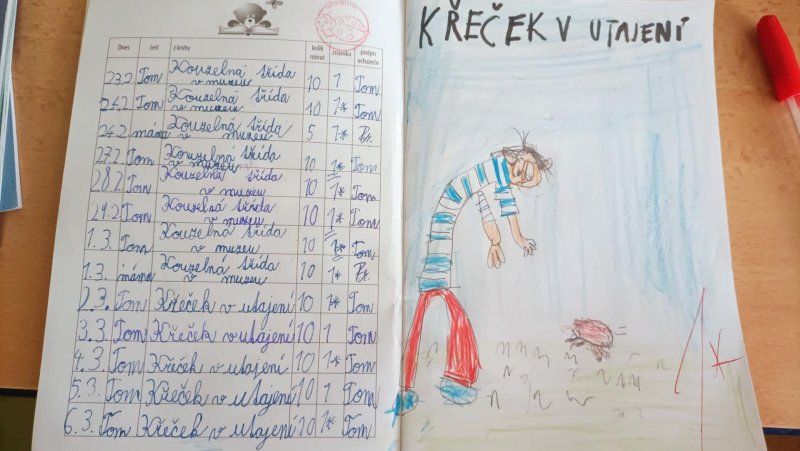 chválím
Dnes četl z knihy kolik minut známka podpis uchazeče
23.2 Tom Kouzelná třída v muzeu 10 1 Tom
24.2. Tom Kouzelná třída v muzeu 10 1* Tom
24.2. máma Kouzelná třída v muzeu 5 1*
27.2. Tom Kouzelná třída v muzeu 10 1* Tom
28.2. Tom Kouzelná třída v muzeu 10 1* Tom
29.2. Tom Kouzelná třída v muzeu 10 1* Tom
1.3. Tom Kouzelná třída v muzeu 10 1* Tom
1.3. máma Kouzelná třída v muzeu 10 1*
2.3. Tom Křeček v utajení 10 1* Tom
3.3. Tom Křeček v utajení 10 1 Tom
4.3. Tom Křeček v utajení 10 1* Tom
5.3. Tom Křeček v utajení 10 1 Tom
6.3. Tom Křeček v utajení 10 1* Tom
KŘEČEK V UTAJENÍ
1*